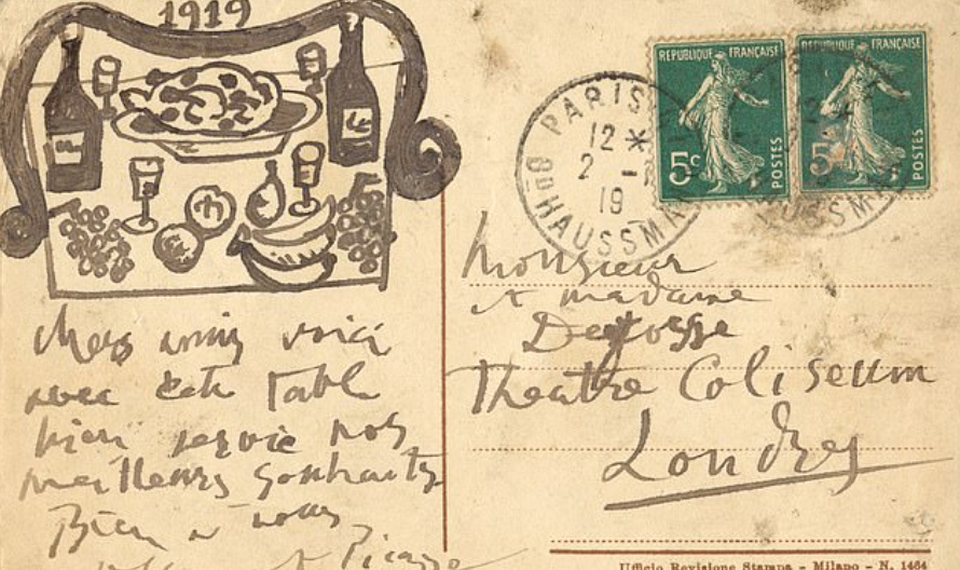 1919
Chers amis voici
avec cete table
bien servie nos
meilleurs souhaits
Bien a vous
et Picasso
REPUBLIQUE FRANÇAISE
5c
POSTES
REPUBLIQUE FRANÇAISE
5c
POSTES
PARIS
12 *
2 -
19
Bd HAUSSMAN
Monsieur
et madame
Theatre Coliseum
Londres
Ufficio Revisione Stampa - Milano - N. 1464